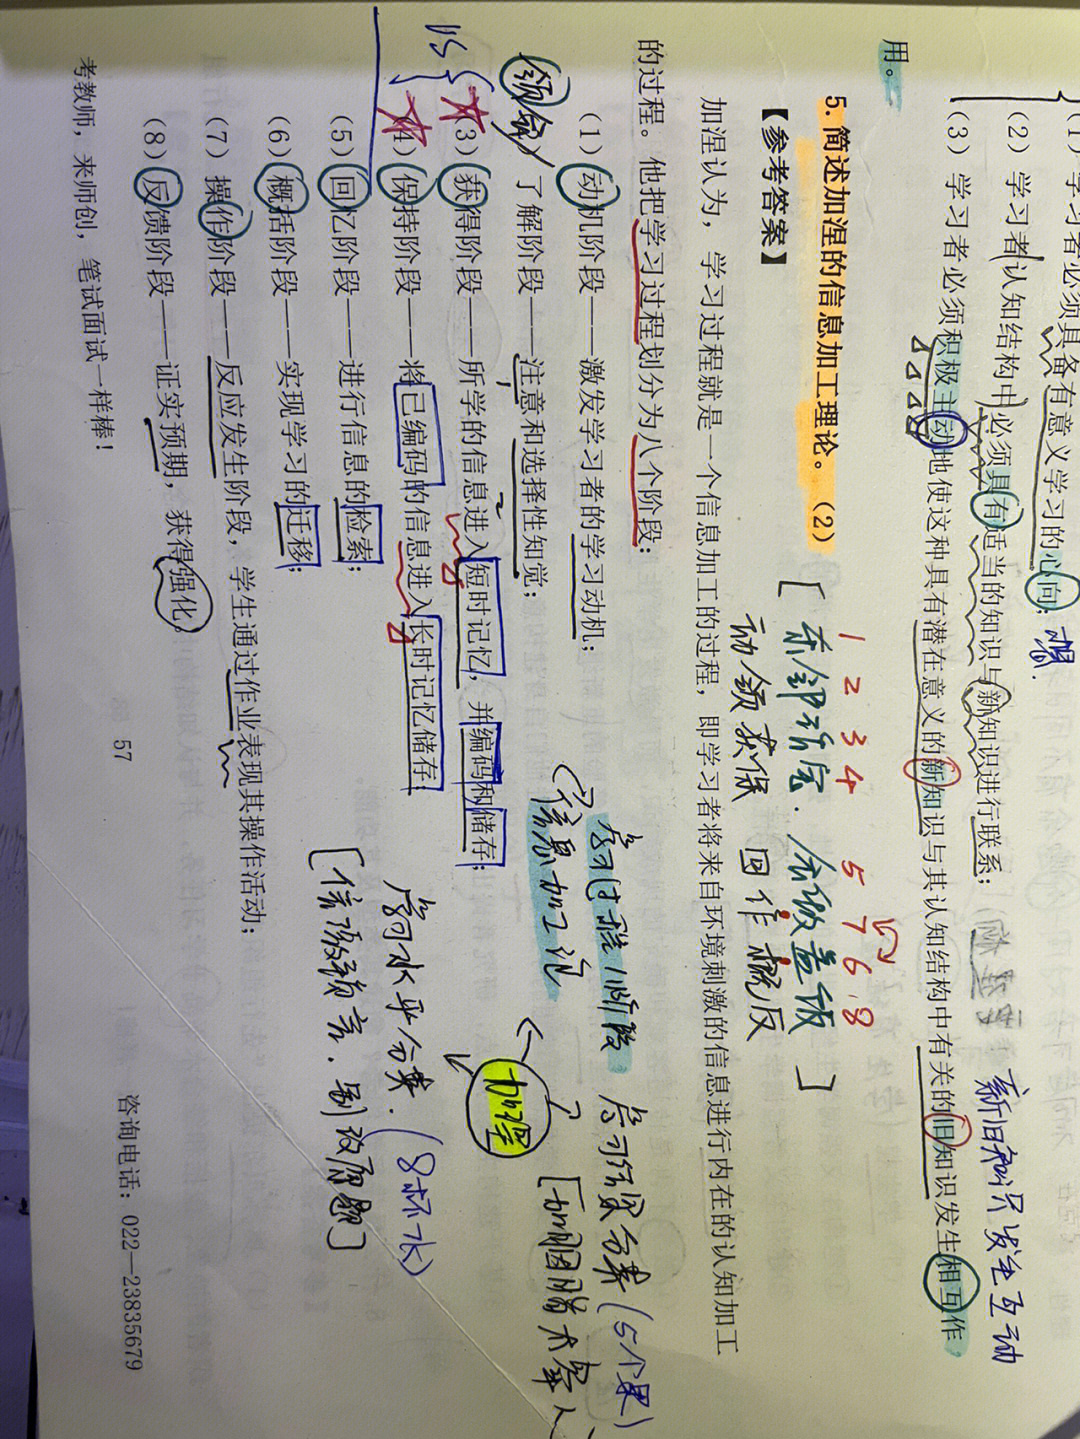 (1) 学习者必须具备有意义学习的心向;
(2) 学习者认知结构中必须具有适当的知识与新知识进行联系;
(3) 学习者必须积极主动地使这种具有潜在意义的新知识与其认知结构中有关的旧知识发生相互作
用。
新旧知识发生互动
5. 简述加涅的信息加工理论。(2)
1 2 3 4 5 7 6.8
动领获保 回作概反
【参考答案】
加涅认为,学习过程就是一个信息加工的过程,即学习者将来自环境刺激的信息进行内在的认知加工
的过程。他把学习过程划分为八个阶段:
(1) 动机阶段——激发学习者的学习动机;
领会
了解阶段——注意和选择性知觉;
VS
3) 获得阶段——所学的信息进入短时记忆,并编码和储存;
4) 保持阶段——将已编码的信息进入长时记忆储存;
(5) 回忆阶段——进行信息的检索;
(6) 概括阶段——实现学习的迁移;
(7) 操作阶段——反应发生阶段,学生通过作业表现其操作活动;
(8) 反馈阶段——证实预期,获得强化。
学习过程阶段
信息加工论
加涅
学习结果分类(5个果)
学习水平分类.(8杯水)
考教师,来师创,笔试面试一样棒!
57
咨询电话:022—23835679